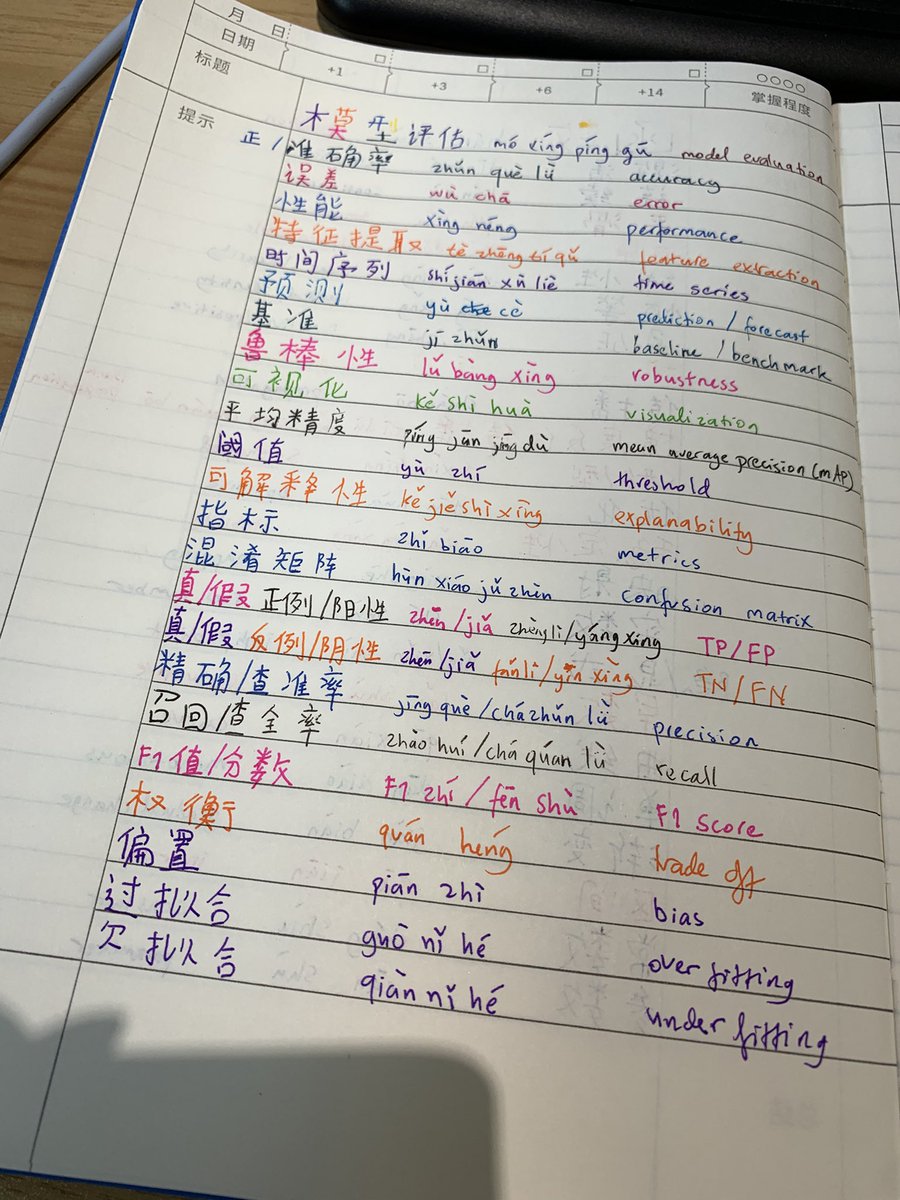 月 日
日期
+1 +3 +6 +14 掌握程度
标题
提示
模型评估 mó xíng píng gū model evaluation
正/准确率 zhǔn què lǜ accuracy
误差 wù chā error
性能 xìng néng performance
特征提取 tè zhēng tí qǔ feature extraction
时间序列 shí jiān xù liè time series
预测 yù cè prediction / forecast
基准 jī zhǔn baseline / benchmark
鲁棒性 lǔ bàng xìng robustness
可视化 kě shì huà visualization
平均精度 píng jūn jīng dù mean average precision (mAP)
阈值 yù zhí threshold
可解释性 kě jiě shì xìng explanability
指标 zhǐ biāo metrics
混淆矩阵 hùn xiáo jǔ zhèn confusion matrix
真/假正例/阳性 zhēn/jiǎ zhèng lì/yáng xìng TP/FP
真/假反例/阴性 zhēn/jiǎ fǎn lì/yīn xìng TN/FN
精确/查准率 jīng què/chá zhǔn lǜ precision
召回/查全率 zhào huí/chá quán lǜ recall
F1值/分数 F1 zhí / fēn shù F1 score
权衡 quán héng trade off
偏置 piān zhì bias
过拟合 guò nǐ hé over fitting
欠拟合 qiàn nǐ hé under fitting